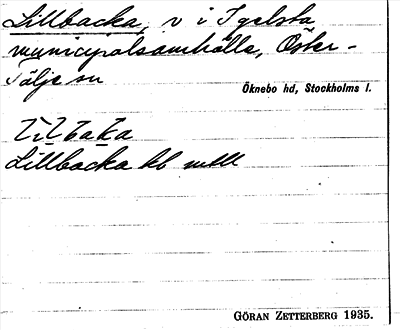 Lillbacka, v i Igelsta
municipalsamhälle, Öster-
Tälje sn
Öknebo hd, Stockholms l.
Lillbacka
GÖRAN ZETTERBERG 1935.